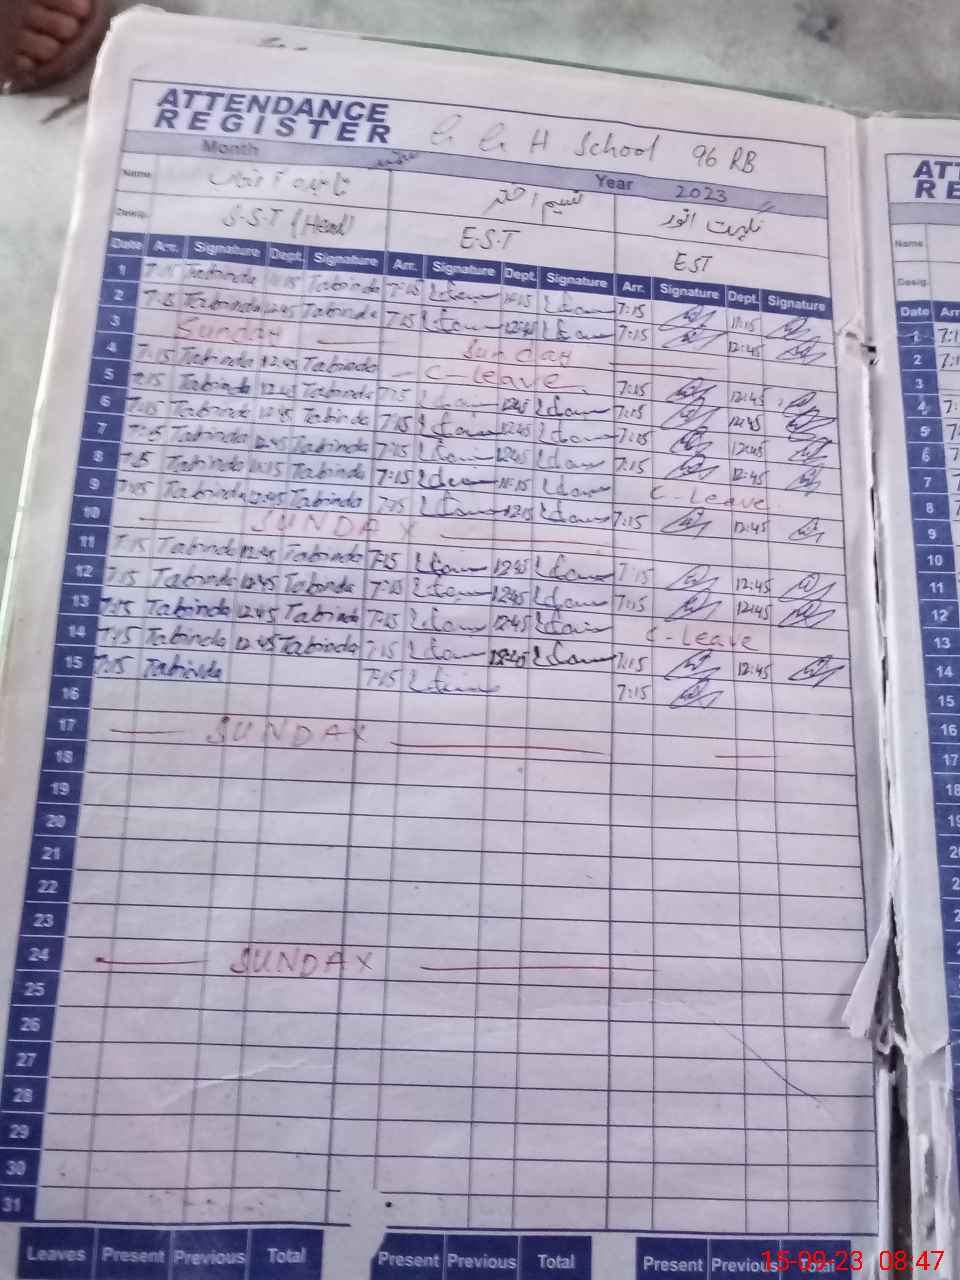 ATTENDANCE
REGISTER
G G H School 96 RB
Month ستمبر Year 2023
Name نسیم اختر
Desig. S.S.T (Head) E.S.T EST
Date Arr. Signature Dept. Signature Arr. Signature Dept. Signature Arr. Signature Dept. Signature
1 7:15 Tabinda 11:15 Tabinda 7:15 11:15 7:15 11:15
2 7:15 Tabinda 12:45 Tabinda 7:15 12:45 7:15 12:45
3 Sunday Sunday
4 7:15 Tabinda 12:45 Tabinda C-leave 7:15 12:45
5 7:15 Tabinda 12:45 Tabinda 7:15 12:45 7:15 12:45
6 7:15 Tabinda 12:45 Tabinda 7:15 12:45 7:15 12:45
7 7:15 Tabinda 12:45 Tabinda 7:15 12:45 7:15 12:45
8 7:15 Tabinda 11:15 Tabinda 7:15 11:15 C-Leave
9 7:15 Tabinda 12:45 Tabinda 7:15 7:15 12:45
10 SUNDAY
11 7:15 Tabinda 12:45 Tabinda 7:15 12:45 7:15 12:45
12 7:15 Tabinda 12:45 Tabinda 7:15 12:45 7:15 12:45
13 7:15 Tabinda 12:45 Tabinda 7:15 12:45 C-Leave
14 7:15 Tabinda 12:45 Tabinda 7:15 12:45 7:15 12:45
15 7:15 Tabinda 7:15 7:15
16
17 SUNDAY
18
19
20
21
22
23
24 SUNDAY
25
26
27
28
29
30
31
Leaves Present Previous Total Present Previous Total Present Previous Total
15-09-23 08:47
ATT
RE
Name
Desig.
Date Arr
1 7:1
2 7:1
3
4 7:
5 7
6 7
7 7
8 7
9
10
11
12
13
14
15
16
17
18